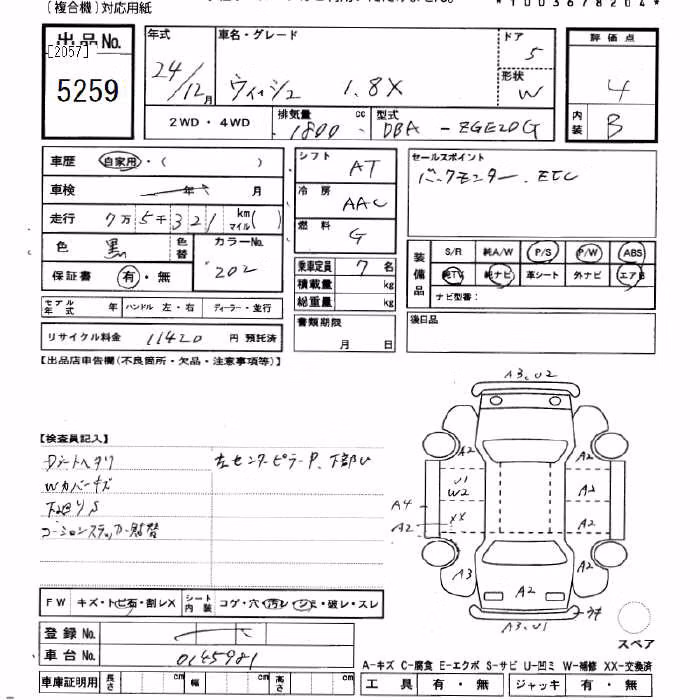 (複合機)対応用紙
*1003678204*
出品No.
[2057]
5259
年式
24/12月
車名・グレード
ウィッシュ 1.8X
ドア
5
形状
W
評価点
4
内装
B
2WD・4WD
排気量
1800 cc
型式
DBA - ZGE20G
車歴 自家用・( )
車検 年 月
走行 7万5千321 km マイル( )
色 黒 色替
カラーNo.
202
保証書 有・無
シフト
AT
冷房
AAC
燃料
G
乗車定員 7名
積載量 kg
総重量 kg
書類期限
月 日
セールスポイント
バックモニター. ETC
装備品
S/R 純A/W P/S P/W ABS
純TV 純ナビ 革シート 外ナビ エアB
ナビ型番:
後日品
モデル年式 年 ハンドル 左・右 ディーラー・並行
リサイクル料金 11420 円 預託済
【出品店申告欄(不良箇所・欠品・注意事項等)】
【検査員記入】
Dシートヘタリ
左センターピラーP、下部U
Wカバーキズ
下回りS
コーションステッカー貼替
A3.U2
A2
A2
U1
W2
A2
A4
A2
XX
A2
A3
A2
A2
A3.U1
スペア
FW キズ・トビ石・割レX
シート内装 コゲ・穴・汚レ・シミ・破レ・スレ
登録No.
車台No. 0145981
車庫証明用 長さ cm 幅 cm 高さ cm
A-キズ C-腐食 E-エクボ S-サビ U-凹ミ W-補修 XX-交換済
工具 有・無 ジャッキ 有・無